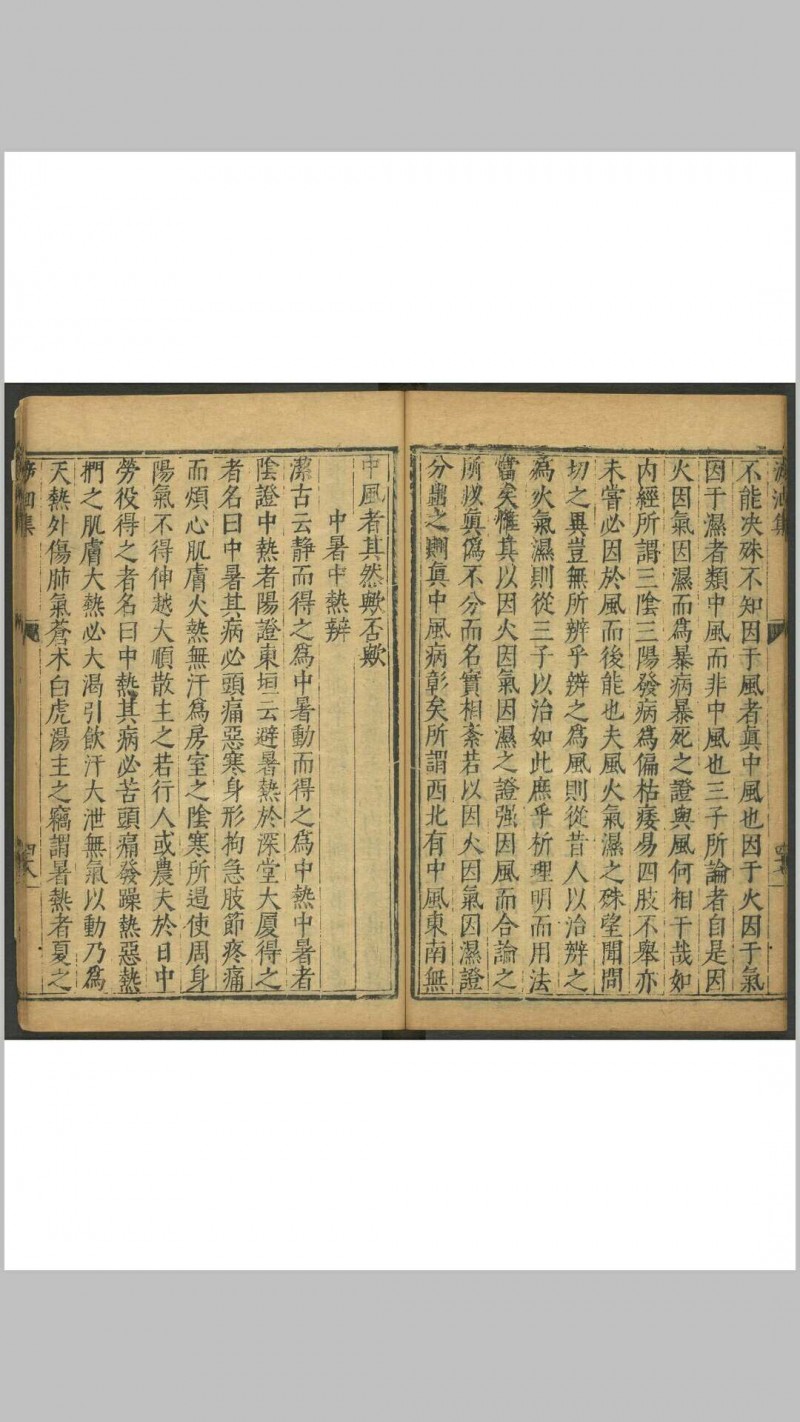 不能决殊不知因于風者眞中風也因于火因于氣
因于濕者類中風而非中風也三子所論者自是因
火因氣因濕而爲暴病暴死之證與風何相干哉如
内經所謂三陰三陽發病爲偏枯痿易四肢不舉亦
未嘗必因於風而後能也夫風火氣濕之殊望聞問
切之異豈無所辨乎辨之爲風則從昔人以治辨之
爲火氣濕則從三子以治如此庶乎析理明而用法
當矣惟其以因火因氣因濕之證强因風而合論之
所以眞僞不分而名實相紊若以因火因氣因濕證
分出之則眞中風病彰矣所謂西北有中風東南無
中風者其然歟否歟
中暑中熱辨
潔古云静而得之爲中暑動而得之爲中熱中暑者
陰證中熱者陽證東垣云避暑熱於深堂大厦得之
者名曰中暑其病必頭痛惡寒身形拘急肢節疼痛
而煩心肌膚火熱無汗爲房室之陰寒所遏使周身
陽氣不得伸越大順散主之若行人或農夫於日中
勞役得之者名曰中熱其病必苦頭痛發躁熱惡熱
捫之肌膚大熱必大渴引飲汗大泄無氣以動乃爲
天熱外傷肺氣蒼术白虎湯主之竊謂暑熱者夏之